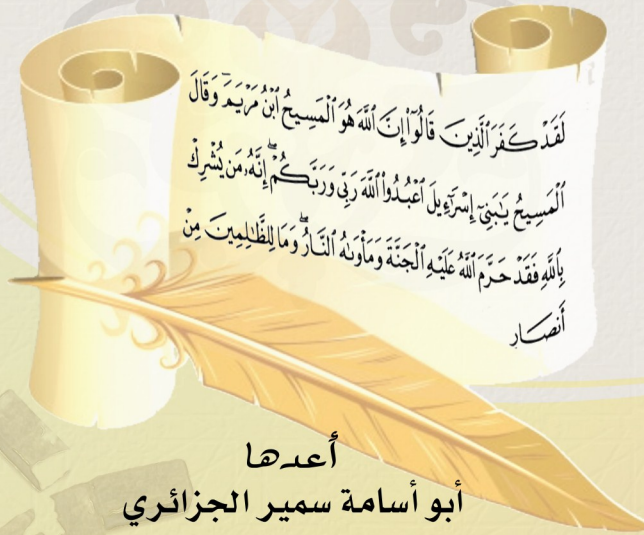 لَقَدْ كَفَرَ ٱلَّذِينَ قَالُوٓا۟ إِنَّ ٱللَّهَ هُوَ ٱلْمَسِيحُ ٱبْنُ مَرْيَمَ ۖ وَقَالَ
ٱلْمَسِيحُ يَٰبَنِىٓ إِسْرَٰٓءِيلَ ٱعْبُدُوا۟ ٱللَّهَ رَبِّى وَرَبَّكُمْ ۖ إِنَّهُۥ مَن يُشْرِكْ
بِٱللَّهِ فَقَدْ حَرَّمَ ٱللَّهُ عَلَيْهِ ٱلْجَنَّةَ وَمَأْوَىٰهُ ٱلنَّارُ ۖ وَمَا لِلظَّٰلِمِينَ مِنْ
أَنصَار
أعدها
أبو أسامة سمير الجزائري